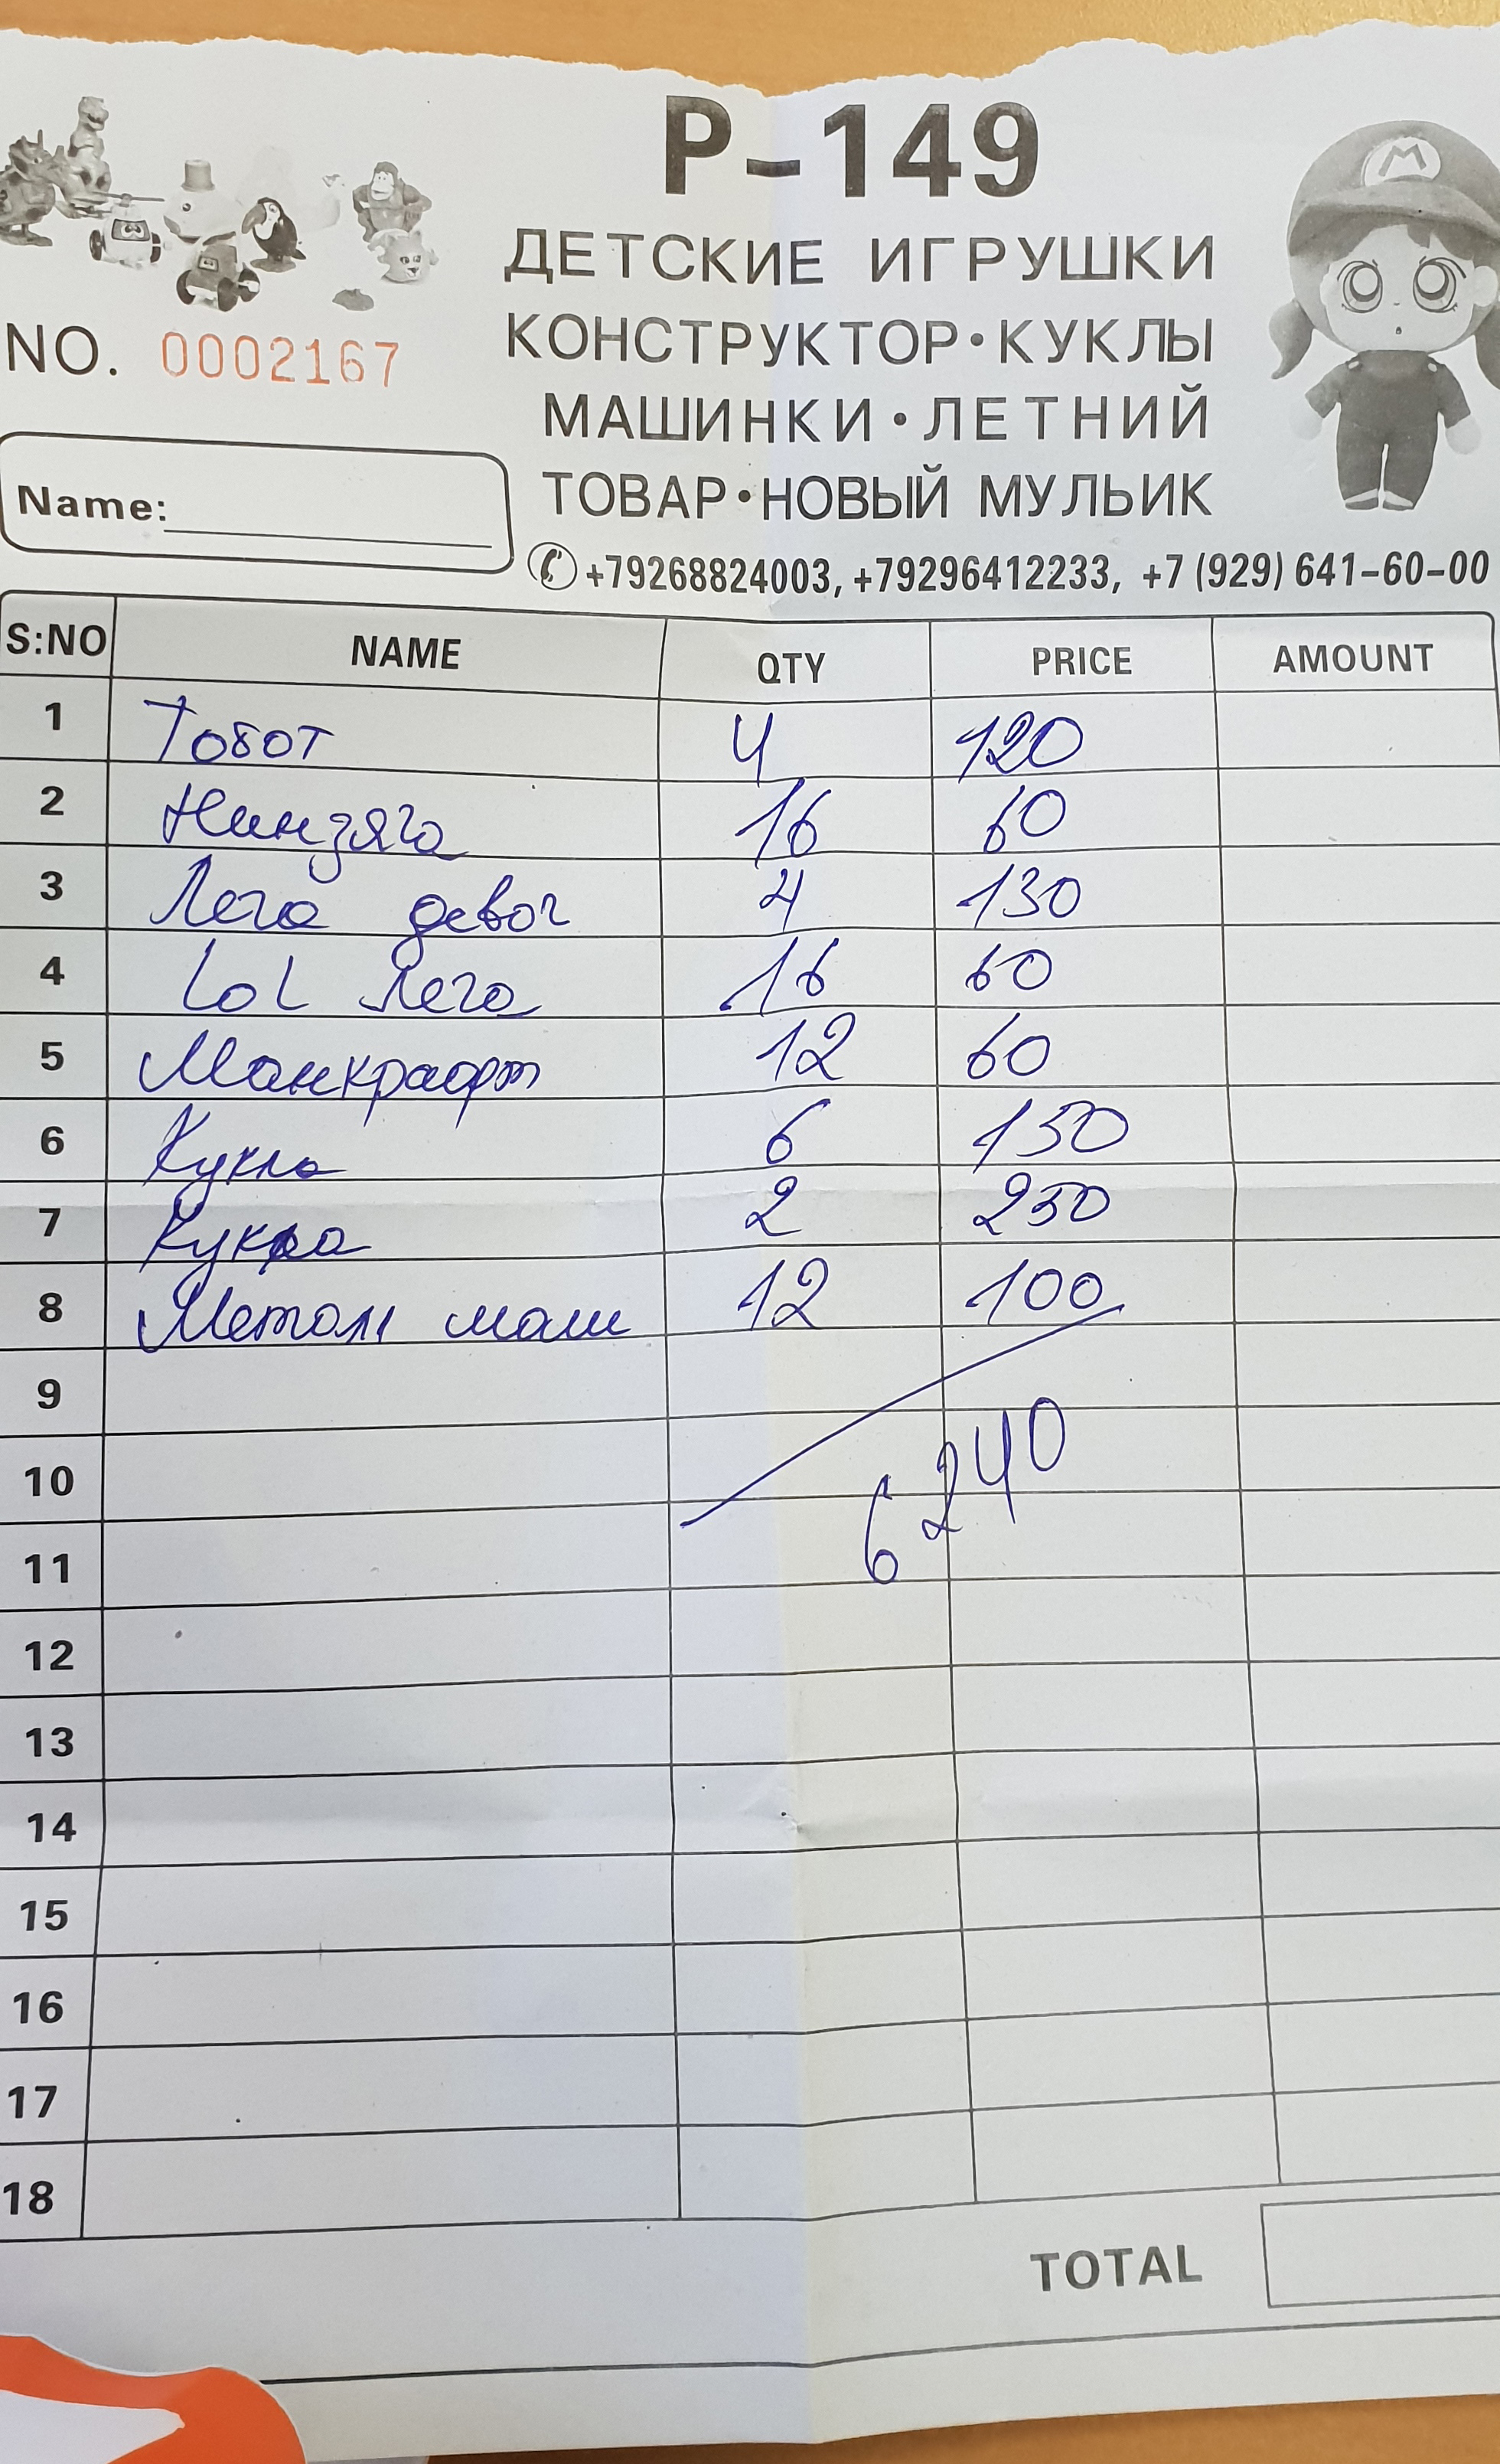 P-149
ДЕТСКИЕ ИГРУШКИ
КОНСТРУКТОР•КУКЛЫ
МАШИНКИ•ЛЕТНИЙ
ТОВАР•НОВЫЙ МУЛЬИК
+79268824003, +79296412233, +7 (929) 641-60-00
M
NO. 0002167
Name:
S:NO NAME QTY PRICE AMOUNT
1 Тобот 4 120
2 Нинзяго 16 60
3 Лего девоч 4 130
4 LOL Лего 16 60
5 Манкрафт 12 60
6 Кукла 6 150
7 Кукла 2 250
8 Метал маш 12 100
9
6240
10
11
12
13
14
15
16
17
18
TOTAL